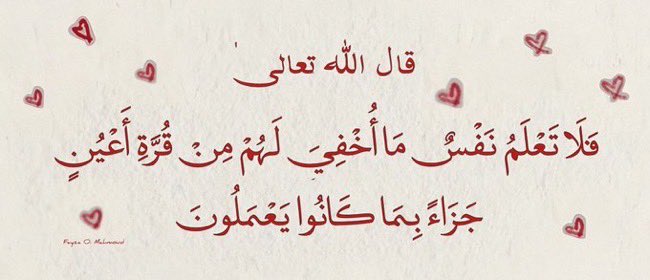 قال الله تعالى
فَلَا تَعْلَمُ نَفْسٌ مَا أُخْفِيَ لَهُمْ مِنْ قُرَّةِ أَعْيُنٍ
جَزَاءً بِمَا كَانُوا يَعْمَلُونَ
Feyza O. Mahmoud